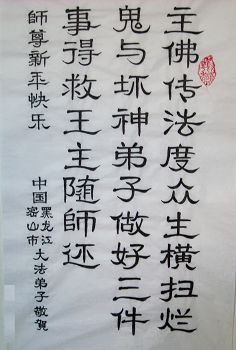 主佛传法度众生横扫烂
鬼与坏神弟子做好三件
事得救王主随師还
師尊新年快乐
中国黑龙江密山市大法弟子敬贺